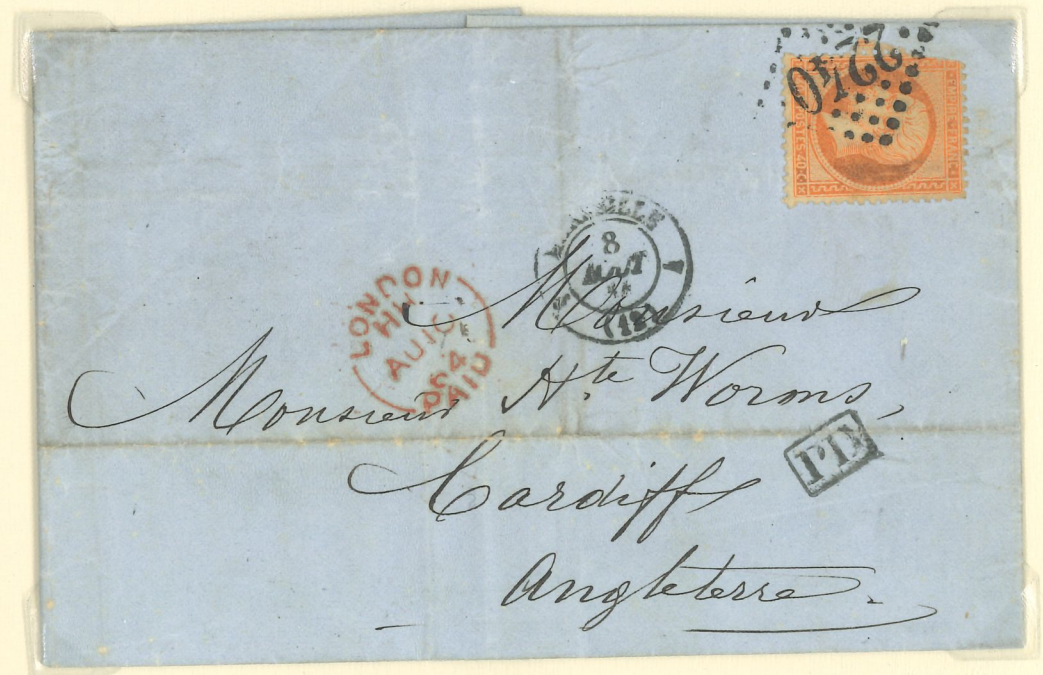 2240
MARSEILLE
8
AOUT
(12)
LONDON
HW
AU10
64
PAID
Monsieur
Monsieur Hte Worms,
PD
Cardiff
Angleterre.